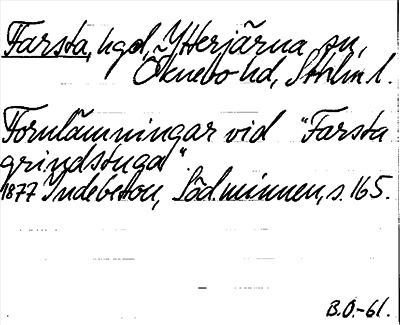 Farsta, hgd, Ytterjärna sn,
Öknebo hd, Sthlm l.
Fornlämningar vid "Farsta
grindstuga".
1877 Indebetou, Söd.minnen, s. 165.
B.O.-61.